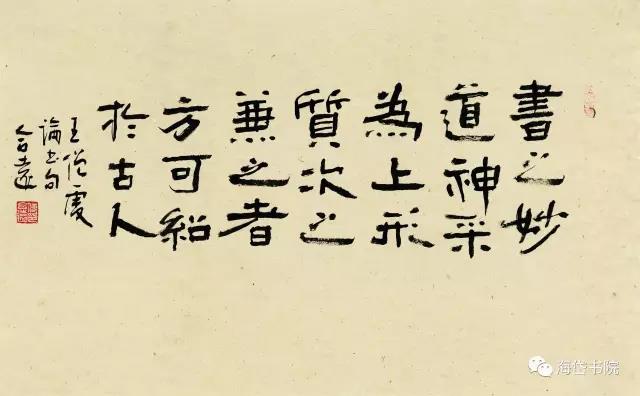 書之妙
道神采
為上形
質次之
兼之者
方可紹
於古人
王僧虔
論書句
海岱书院